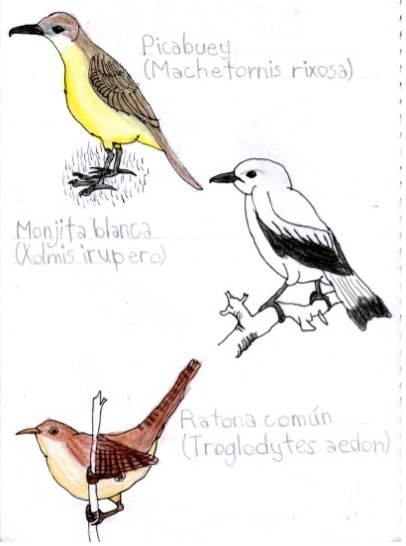 Picabuey
(Machetornis rixosa)
Monjita blanca
(Xolmis irupero)
Ratona común
(Troglodytes aedon)